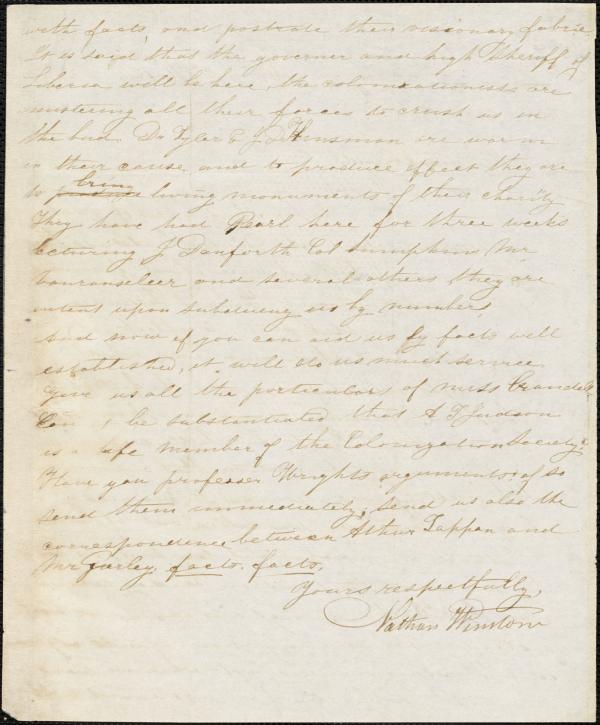 with facts, and postrate their visionary fabric
It is said that the governer and high Sheriff of
Liberia will be here, the colonizationists are
mustering all their forces to crush us in
the bud. Dr Tyler & J D Kinsman are warm
in their cause, and to produce effect they are
to produce bring living monuments of their charity
They have had Pearl here for three weeks
lecturing J Danforth Col Mr
Vanranseleer and several others they are
intent upon subduing us by numbers
and now if you can aid us by facts well
established, it will do us much service.
Give us all the particulars of miss Crandall
Can it be substantiated that A T Judson
is a life member of the Colonization Society?
Have you professor Wrights arguments? if so
send them immediately, send us also the
correspondence between Athur Tappan and
Mr Gurley, facts. facts.
Yours respectfully,
Nathan Winslow